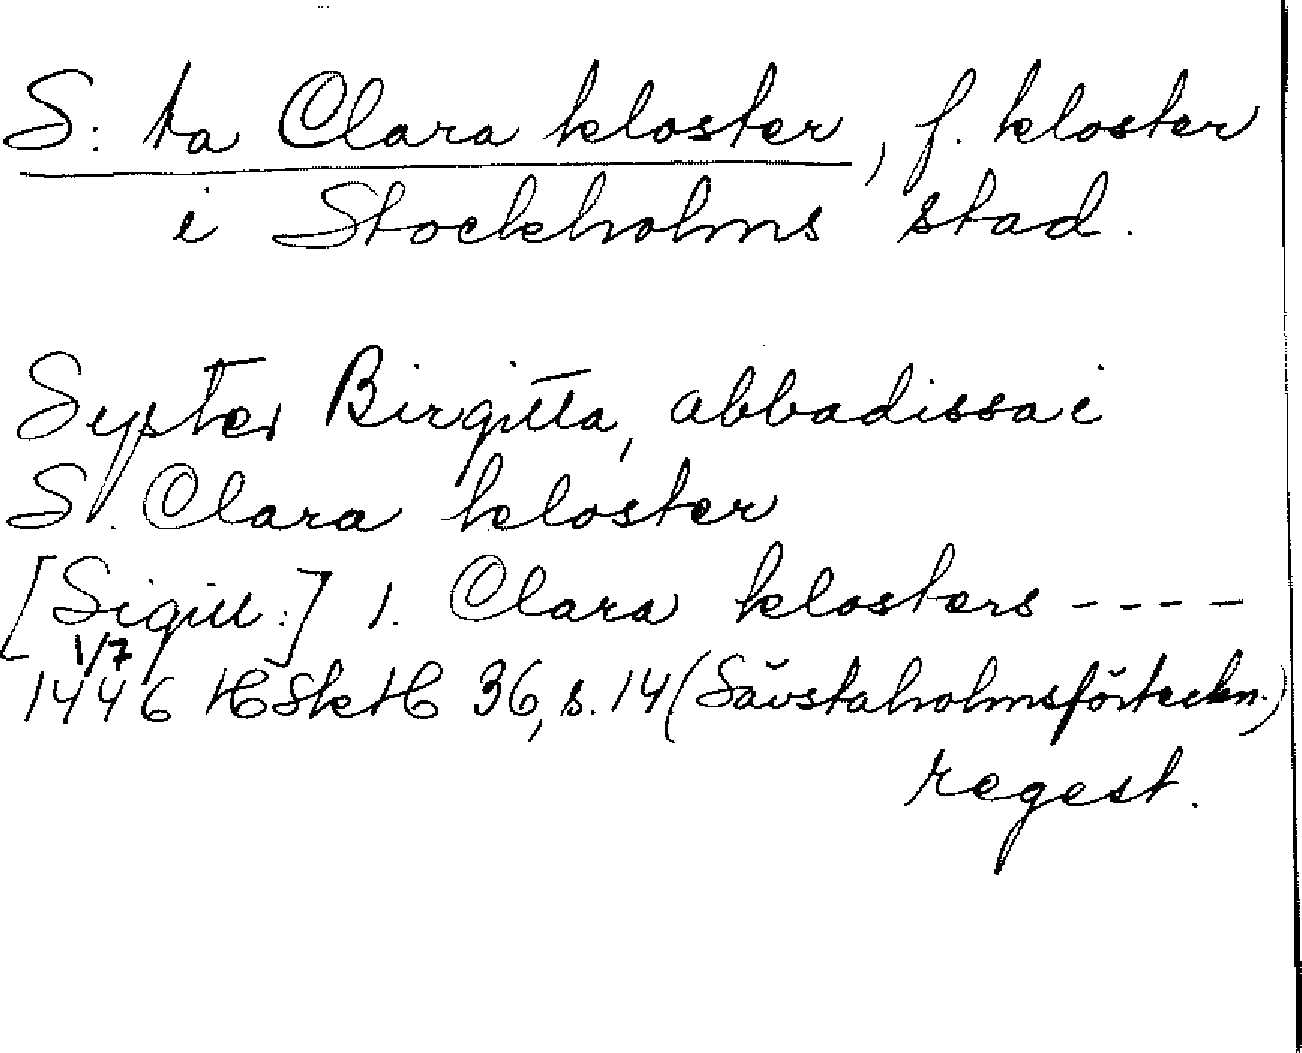 S:ta Clara kloster, f. kloster
i Stockholms stad.
Syster Birgitta, abbadissa i
S. Clara kloster
[Sigill:] 1. Clara klosters ----
1/7
1446 HSkH 36, s. 14 (Sävstaholmsförteckn.)
regest.